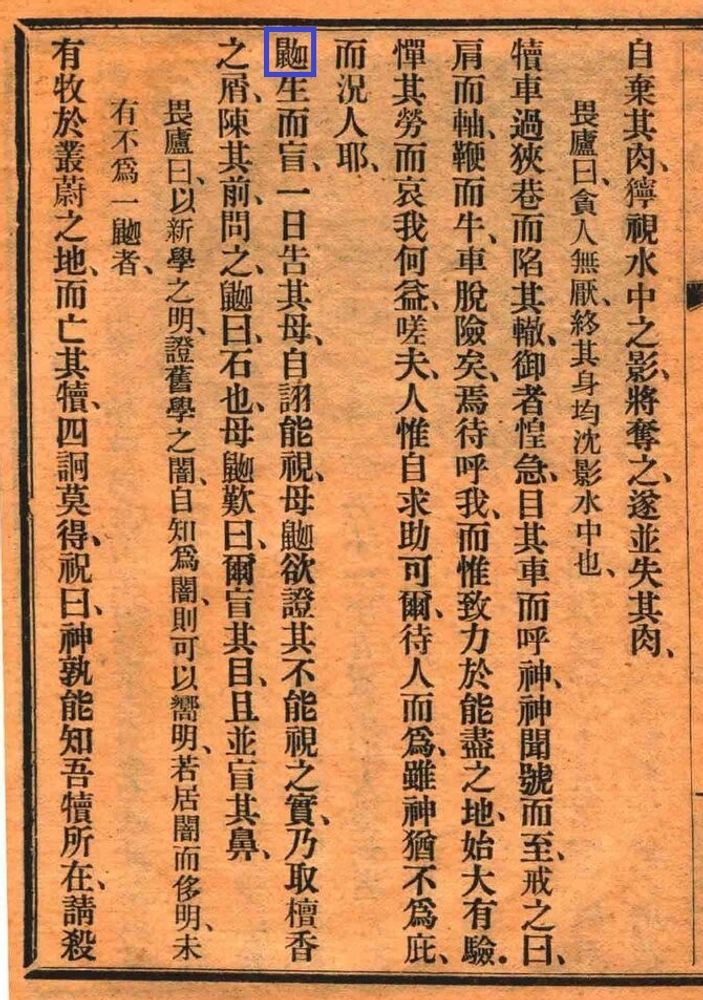 自棄其肉、獰視水中之影、將奪之、遂並失其肉、
畏廬曰、貪人無厭、終其身均沈影水中也、
犢車過狹巷而陷其轍、御者惶急、目其車而呼神、神聞號而至、戒之曰、
肩而軸、鞭而牛、車脫險矣、焉待呼我、而惟致力於能盡之地、始大有驗.
憚其勞而哀我何益、嗟夫、人惟自求助可爾、待人而爲、雖神猶不爲庇、
而況人耶、
鼬生而盲、一日告其母、自詡能視、母鼬欲證其不能視之實、乃取檀香
之屑、陳其前、問之、鼬曰、石也、母鼬歎曰、爾盲其目、且並盲其鼻、
畏廬曰、以新學之明、證舊學之闇、自知爲闇、則可以嚮明、若居闇而侈明、未
有不爲一鼬者、
有牧於叢蔚之地、而亡其犢、四詗莫得、祝曰、神孰能知吾犢所在、請殺